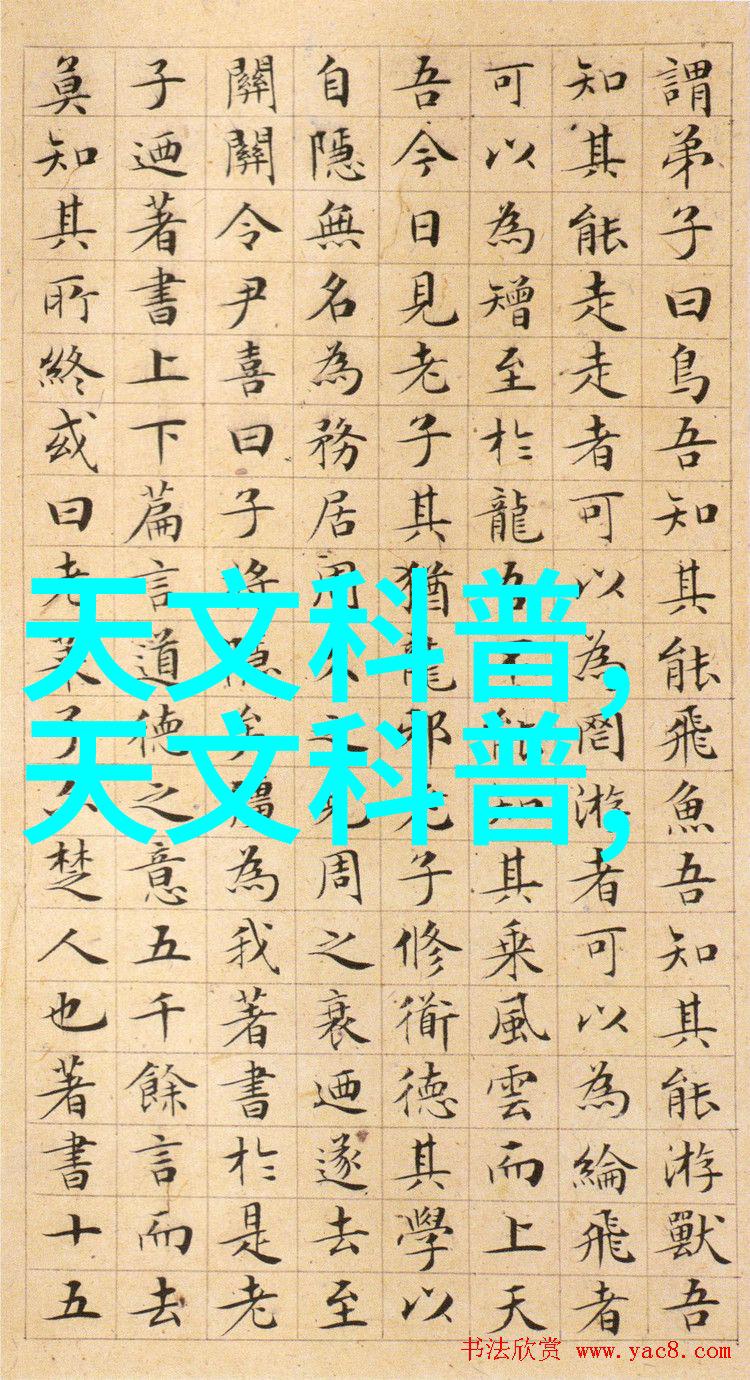 謂弟子曰鳥吾知其能飛魚吾知其能游獸吾
知其能走走者可以為罔游者可以為綸飛者
可以為矰至於龍吾不能知其乗風雲而上天
吾今日見老子其猶龍邪老子修衜德其學以
自隱無名為務居周久之見周之衰迺遂去至
關關令尹喜曰子將隱矣彊為我著書於是老
子迺著書上下篇言道德之意五千餘言而去
莫知其所終或曰老萊子亦楚人也著書十五
天文科普,
天文科普,
书法欣赏 www.yac8.com